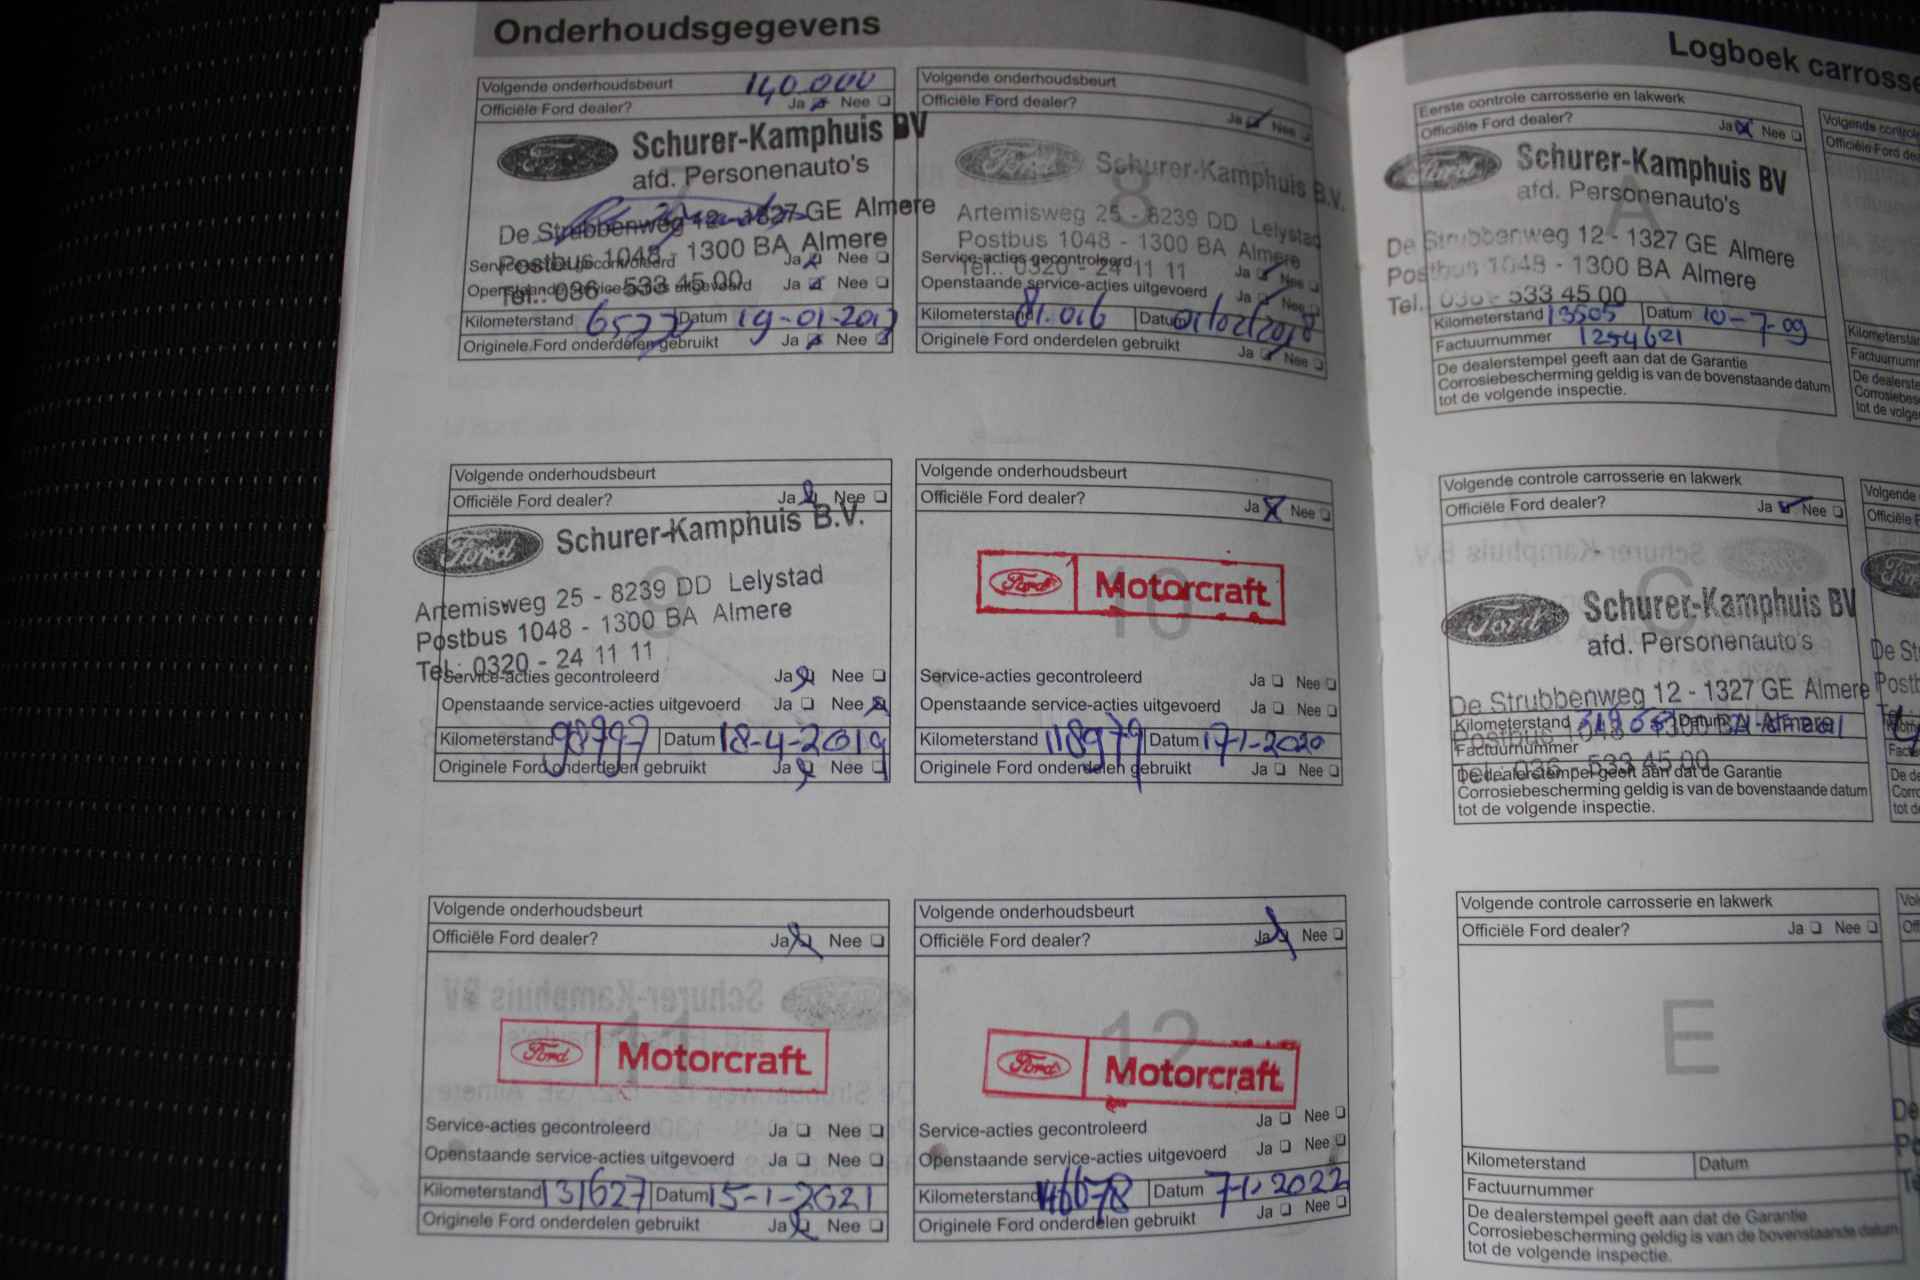 Onderhoudsgegevens
Volgende onderhoudsbeurt 140.000
Officiële Ford dealer? Ja Nee
Ford Schurer-Kamphuis BV
afd. Personenauto's
De Strubbenweg 12 - 1327 GE Almere
Postbus 1048 - 1300 BA Almere
Tel.: 036 - 533 45 00
Service-acties gecontroleerd Ja Nee
Openstaande service-acties uitgevoerd Ja Nee
Kilometerstand Datum 19-01-2017
Originele Ford onderdelen gebruikt Ja Nee
Volgende onderhoudsbeurt
Officiële Ford dealer? Ja Nee
8
Ford Schurer-Kamphuis B.V.
Artemisweg 25 - 8239 DD Lelystad
Postbus 1048 - 1300 BA Almere
Tel.: 0320 - 24 11 11
Service-acties gecontroleerd Ja Nee
Openstaande service-acties uitgevoerd Ja Nee
Kilometerstand 81.016 Datum 01/02/2018
Originele Ford onderdelen gebruikt Ja Nee
Volgende onderhoudsbeurt
Officiële Ford dealer? Ja Nee
9
Ford Schurer-Kamphuis B.V.
Artemisweg 25 - 8239 DD Lelystad
Postbus 1048 - 1300 BA Almere
Tel.: 0320 - 24 11 11
Service-acties gecontroleerd Ja Nee
Openstaande service-acties uitgevoerd Ja Nee
Kilometerstand 98797 Datum 18-4-2019
Originele Ford onderdelen gebruikt Ja Nee
Volgende onderhoudsbeurt
Officiële Ford dealer? Ja Nee
10
Ford Motorcraft
Service-acties gecontroleerd Ja Nee
Openstaande service-acties uitgevoerd Ja Nee
Kilometerstand 118979 Datum 17-1-2020
Originele Ford onderdelen gebruikt Ja Nee
Volgende onderhoudsbeurt
Officiële Ford dealer? Ja Nee
11
Ford Motorcraft
Service-acties gecontroleerd Ja Nee
Openstaande service-acties uitgevoerd Ja Nee
Kilometerstand 131627 Datum 15-1-2021
Originele Ford onderdelen gebruikt Ja Nee
Volgende onderhoudsbeurt
Officiële Ford dealer? Ja Nee
12
Ford Motorcraft
Service-acties gecontroleerd Ja Nee
Openstaande service-acties uitgevoerd Ja Nee
Kilometerstand 146678 Datum 7-1-2022
Originele Ford onderdelen gebruikt Ja Nee
Logboek
Eerste controle carrosserie en lakwerk
Officiële Ford dealer? Ja Nee
A
Ford Schurer-Kamphuis BV
afd. Personenauto's
De Strubbenweg 12 - 1327 GE Almere
Postbus 1048 - 1300 BA Almere
Tel. 036 - 533 45 00
Kilometerstand 13505 Datum 10-7-09
Factuurnummer 1254621
De dealerstempel geeft aan dat de Garantie
Corrosiebescherming geldig is van de bovenstaande datum
tot de volgende inspectie.
Volgende controle carrosserie en lakwerk
Officiële Ford dealer? Ja Nee
C
Ford Schurer-Kamphuis BV
afd. Personenauto's
De Strubbenweg 12 - 1327 GE Almere
Postbus 1048 - 1300 BA Almere
Tel.: 036 - 533 45 00
Kilometerstand Datum
Factuurnummer
De dealerstempel geeft aan dat de Garantie
Corrosiebescherming geldig is van de bovenstaande datum
tot de volgende inspectie.
Volgende controle carrosserie en lakwerk
Officiële Ford dealer? Ja Nee
E
Kilometerstand Datum
Factuurnummer
De dealerstempel geeft aan dat de Garantie
Corrosiebescherming geldig is van de bovenstaande datum
tot de volgende inspectie.